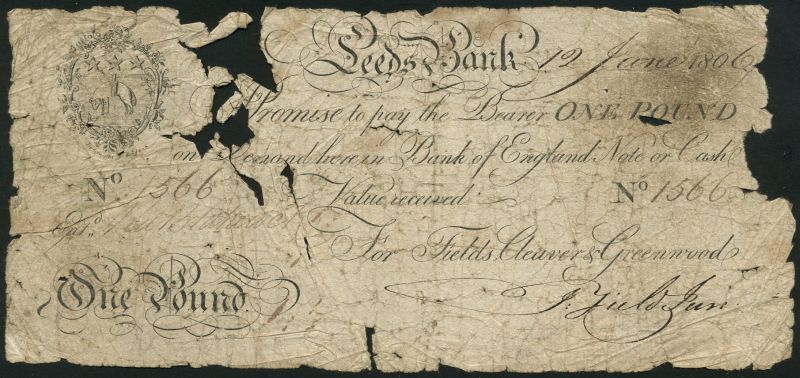 Leeds Bank 12 June 1806
Promise to pay the Bearer ONE POUND
on Demand here in Bank of England Note or Cash
No 1566 Value received No 1566
Ent.d
For Fields, Cleaver & Greenwood
One Pound. J. Field Jun.